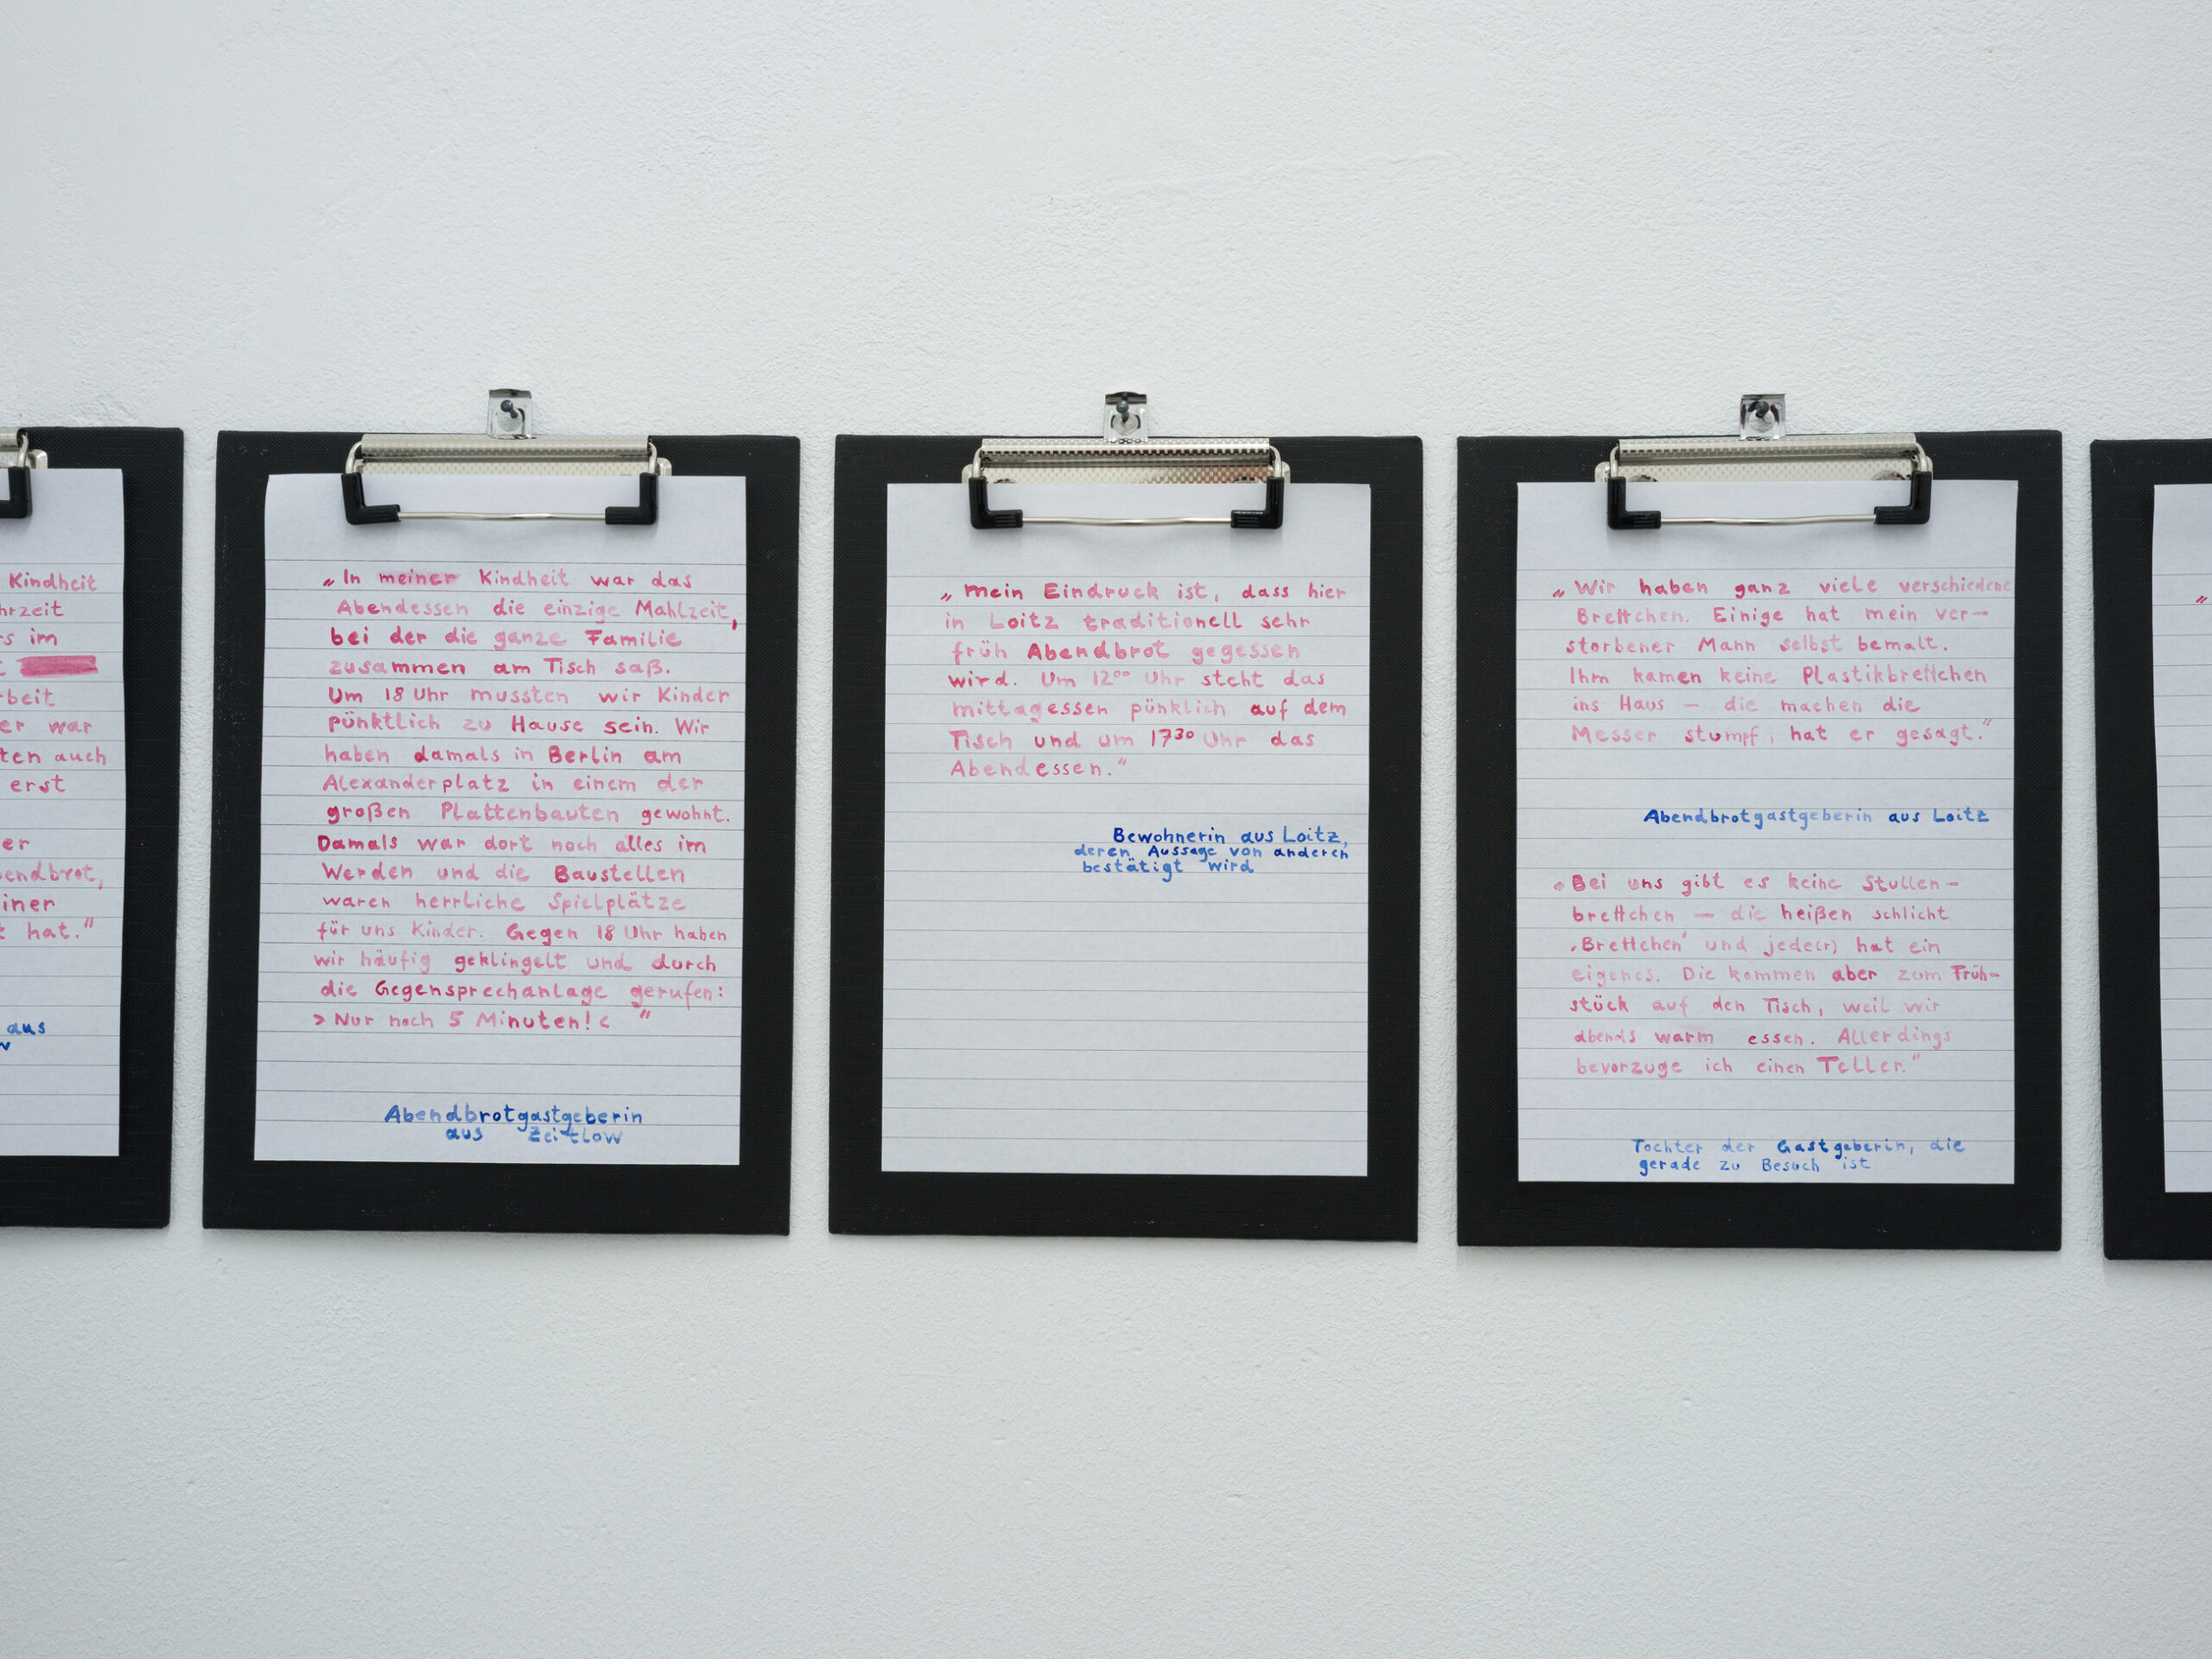 Kindheit
im
rbeit
er war
ten auch
erst
er
endbrot,
iner
hat."
aus
„In meiner Kindheit war das
Abendessen die einzige Mahlzeit,
bei der die ganze Familie
zusammen am Tisch saß.
Um 18 Uhr mussten wir Kinder
pünktlich zu Hause sein. Wir
haben damals in Berlin am
Alexanderplatz in einem der
großen Plattenbauten gewohnt.
Damals war dort noch alles im
Werden und die Baustellen
waren herrliche Spielplätze
für uns Kinder. Gegen 18 Uhr haben
wir häufig geklingelt und durch
die Gegensprechanlage gerufen:
>Nur noch 5 Minuten!< "
Abendbrotgastgeberin
aus Zeitlow
„mein Eindruck ist, dass hier
in Loitz traditionell sehr
früh Abendbrot gegessen
wird. Um 12⁰⁰ Uhr steht das
mittagessen pünklich auf dem
Tisch und um 17³⁰ Uhr das
Abendessen."
Bewohnerin aus Loitz,
deren Aussage von anderen
bestätigt wird
„Wir haben ganz viele verschiedene
Brettchen. Einige hat mein ver-
storbener Mann selbst bemalt.
Ihm kamen keine Plastikbrettchen
ins Haus – die machen die
Messer stumpf, hat er gesagt."
Abendbrotgastgeberin aus Loitz
„Bei uns gibt es keine Stullen-
brettchen – die heißen schlicht
‚Brettchen' und jede(r) hat ein
eigenes. Die kommen aber zum Früh-
stück auf den Tisch, weil wir
abends warm essen. Allerdings
bevorzuge ich einen Teller."
Tochter der Gastgeberin, die
gerade zu Besuch ist
„